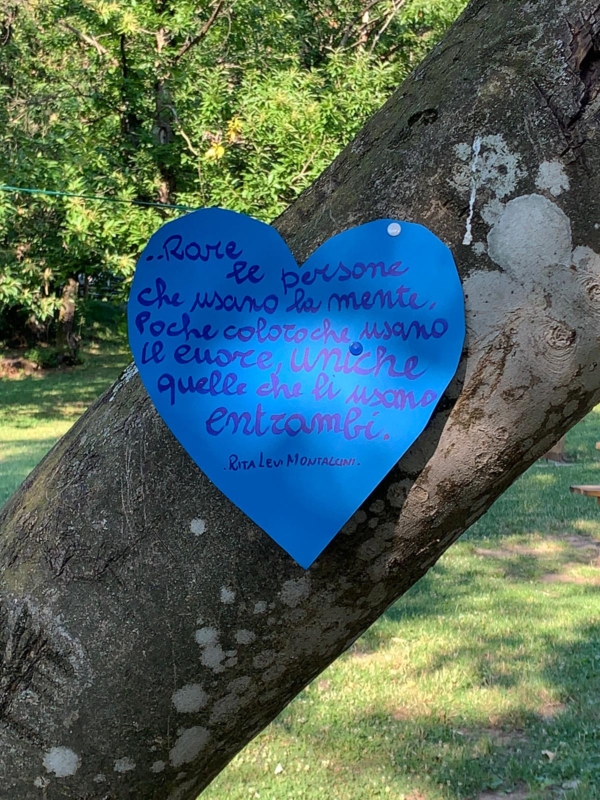 ..Rare
le persone
che usano la mente.
Poche coloro che usano
il cuore, uniche
quelle che li usano
entrambi.
.RITA LEVI MONTALCINI.